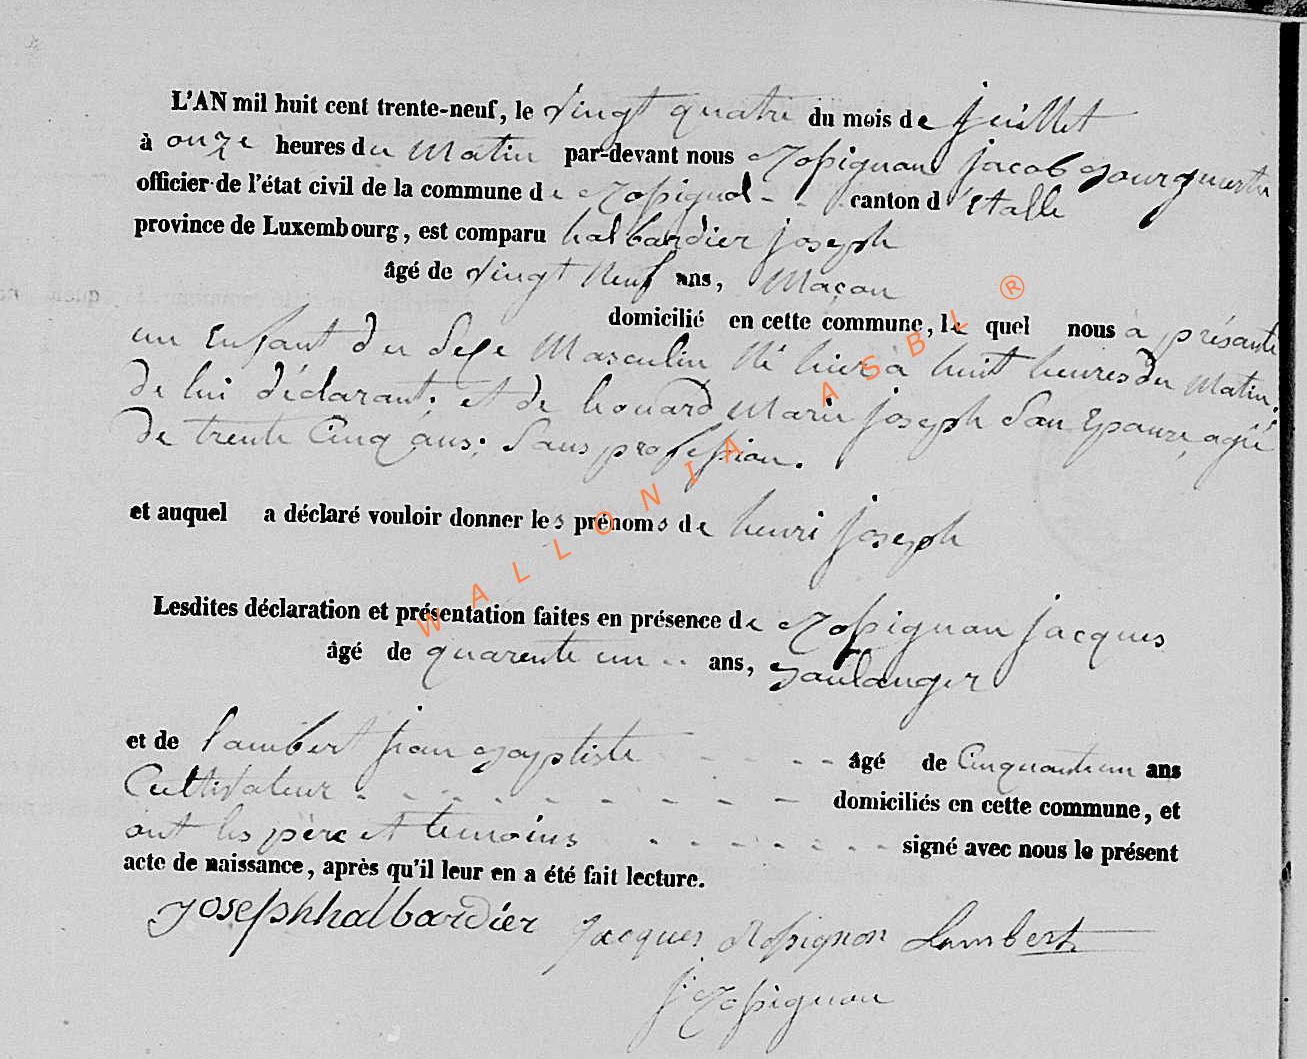 L'AN mil huit cent trente-neuf, le Vingt quatre du mois de juillet
à onze heures du Matin par-devant nous Rossignon jacob Bourgmestre
officier de l'état civil de la commune de Rossignol - - canton d'Etalle
province de Luxembourg, est comparu halbardier joseph
âgé de Vingt Neuf ans, Maçon
domicilié en cette commune, le quel nous à présenté
un Enfant du Sexe Masculin Né hier à huit heures du Matin.
de lui déclarant; et de houard Marie joseph Son Epouse, agée
de trente Cinq ans; Sans profession.
et auquel a déclaré vouloir donner les prénoms de henri joseph
Lesdites déclaration et présentation faites en présence de Rossignon jacques
âgé de quarente un - - ans, Boulanger
et de lambert jean Baptiste - - - - âgé de Cinquante un ans
Cultivateur - - - - - - - - - domiciliés en cette commune, et
ont les père et temoins - - - - - - - signé avec nous le présent
acte de naissance, après qu'il leur en a été fait lecture.
Joseph halbardier Jacques Rossignon Lambert
j Rossignon
WALLONIA ASBL ®